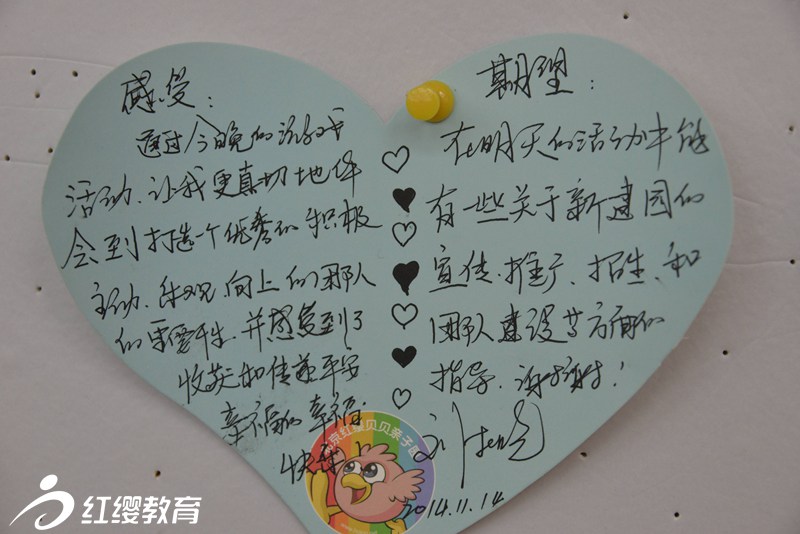 感受：
通过今晚的游戏
活动、让我更真切地体
会到打造一个优秀的积极
主动、乐观、向上的团队
的重要性、并感受到了
收获和传递平安
幸福的幸福
快乐！
期望：
在明天的活动中能
有一些关于新建园的
宣传、推广、招生、和
团队建设等方面的
指导、谢谢！
2014.11.14
北京红缨贝贝亲子园
红缨教育